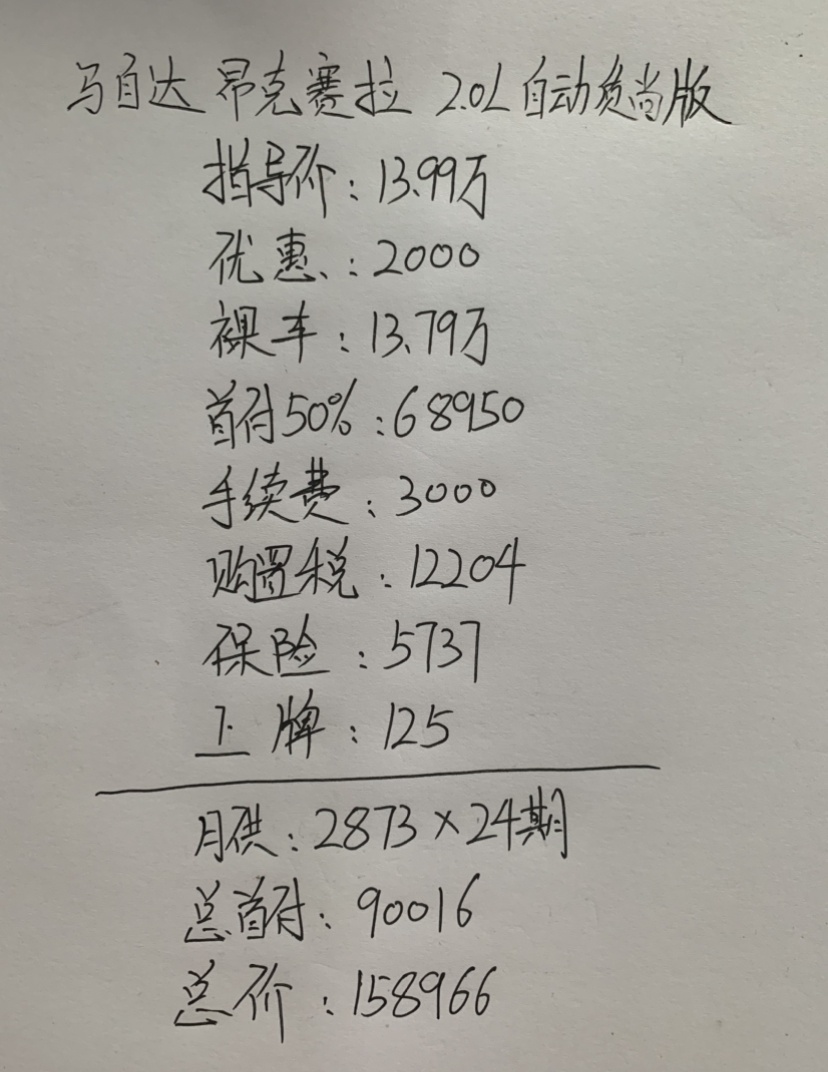 马自达 昂克赛拉 2.0L 自动质尚版
指导价：13.99万
优惠：2000
裸车：13.79万
首付50%：68950
手续费：3000
购置税：12204
保险：5737
上牌：125
月供：2873×24期
总首付：90016
总价：158966